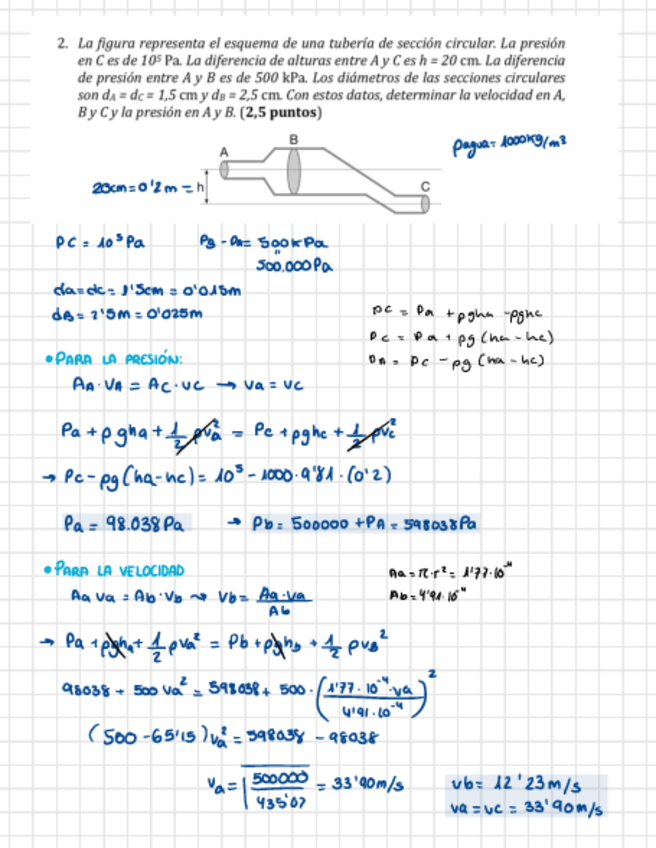 2. La figura representa el esquema de una tubería de sección circular. La presión
en C es de 10⁵ Pa. La diferencia de alturas entre A y C es h = 20 cm. La diferencia
de presión entre A y B es de 500 kPa. Los diámetros de las secciones circulares
son d_A = d_C = 1,5 cm y d_B = 2,5 cm. Con estos datos, determinar la velocidad en A,
B y C y la presión en A y B. (2,5 puntos)
ρagua = 1000kg/m³
A
B
C
20cm = 0'2m = h
PC = 10⁵ Pa
PB - PA = 500kPa
"
500.000Pa
da = dc = 1'5cm = 0'015m
dB = 2'5m = 0'025m
Pc = Pa + ρgha - ρghc
Pc = Pa + ρg (ha - hc)
PA = Pc - ρg (ha - hc)
• PARA LA PRESIÓN:
AA · VA = AC · VC → Va = VC
Pa + ρgha + 1/2 ρVa² = Pc + ρghc + 1/2 ρVc²
→ Pc - ρg (ha - hc) = 10⁵ - 1000 · 9'81 · (0'2)
Pa = 98.038Pa → Pb = 500000 + PA = 598038Pa
• PARA LA VELOCIDAD
Aa = π·r² = 1'77·10⁻⁴
Ab = 4'91·10⁻⁴
Aa Va = Ab · Vb ⇝ Vb = Aa·Va / Ab
→ Pa + ρgha + 1/2 ρVa² = Pb + ρghb + 1/2 ρVB²
98038 + 500 Va² = 598038 + 500 · (1'77 · 10⁻⁴ · Va / 4'91 · 10⁻⁴)²
(500 - 65'15) Va² = 598038 - 98038
Va = √(500000 / 435'07) = 33'90 m/s
Vb = 12'23 m/s
Va = Vc = 33'90 m/s